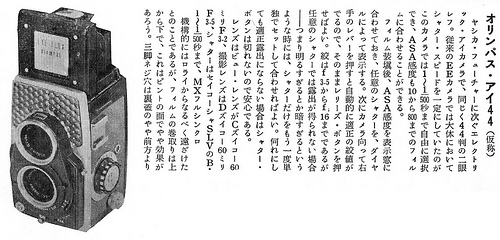 オリンパス・アイ44（仮称）
ヤシカ・フューチャーに次ぐエレクトリ
ック・アイのカメラで、同じく4×4判の二眼
レフ。従来のEEカメラでは大体において
シャター・スピードを一定にしていたのが
このカメラでは1/1〜1/500秒まで自由に選択
でき、ASA感度も10から800までのフィル
ムに合わせることができる。
フィルム装填後、ASA感度を表示窓に
合わせておき、任意のシャターを、ダイヤ
ルによって表示する。次にカメラ向って右
手のレバーを押すと自動的に適正の絞値が
でるので、そのままレリーズ・ボタンを押
せばよい。絞はf3.5からf16まであるが
任意のシャターでは露出が得られない場合
——つまり明るすぎるとか暗すぎるという
ような時には、シャターだけをもう一度単
独でセットして合わせればよい。何れにし
ても適正露出にならない場合はシャター・
ボタンは切れないので安心である。
レンズはビュー・レンズがCズイコー60
ミリF3.2、撮影レンズはDズイコー60ミリ
F3.5、シャターはセイコーシャSLVのB・
1/1〜1/500秒まで、MXフルシンクロ
機構的にはローライからなるべく遠ざけた
とのことであるが、フィルムの巻取りは上
から下で、これはピントの面でやや効果が
あろう。三脚ネジ穴は裏蓋のやや前方より